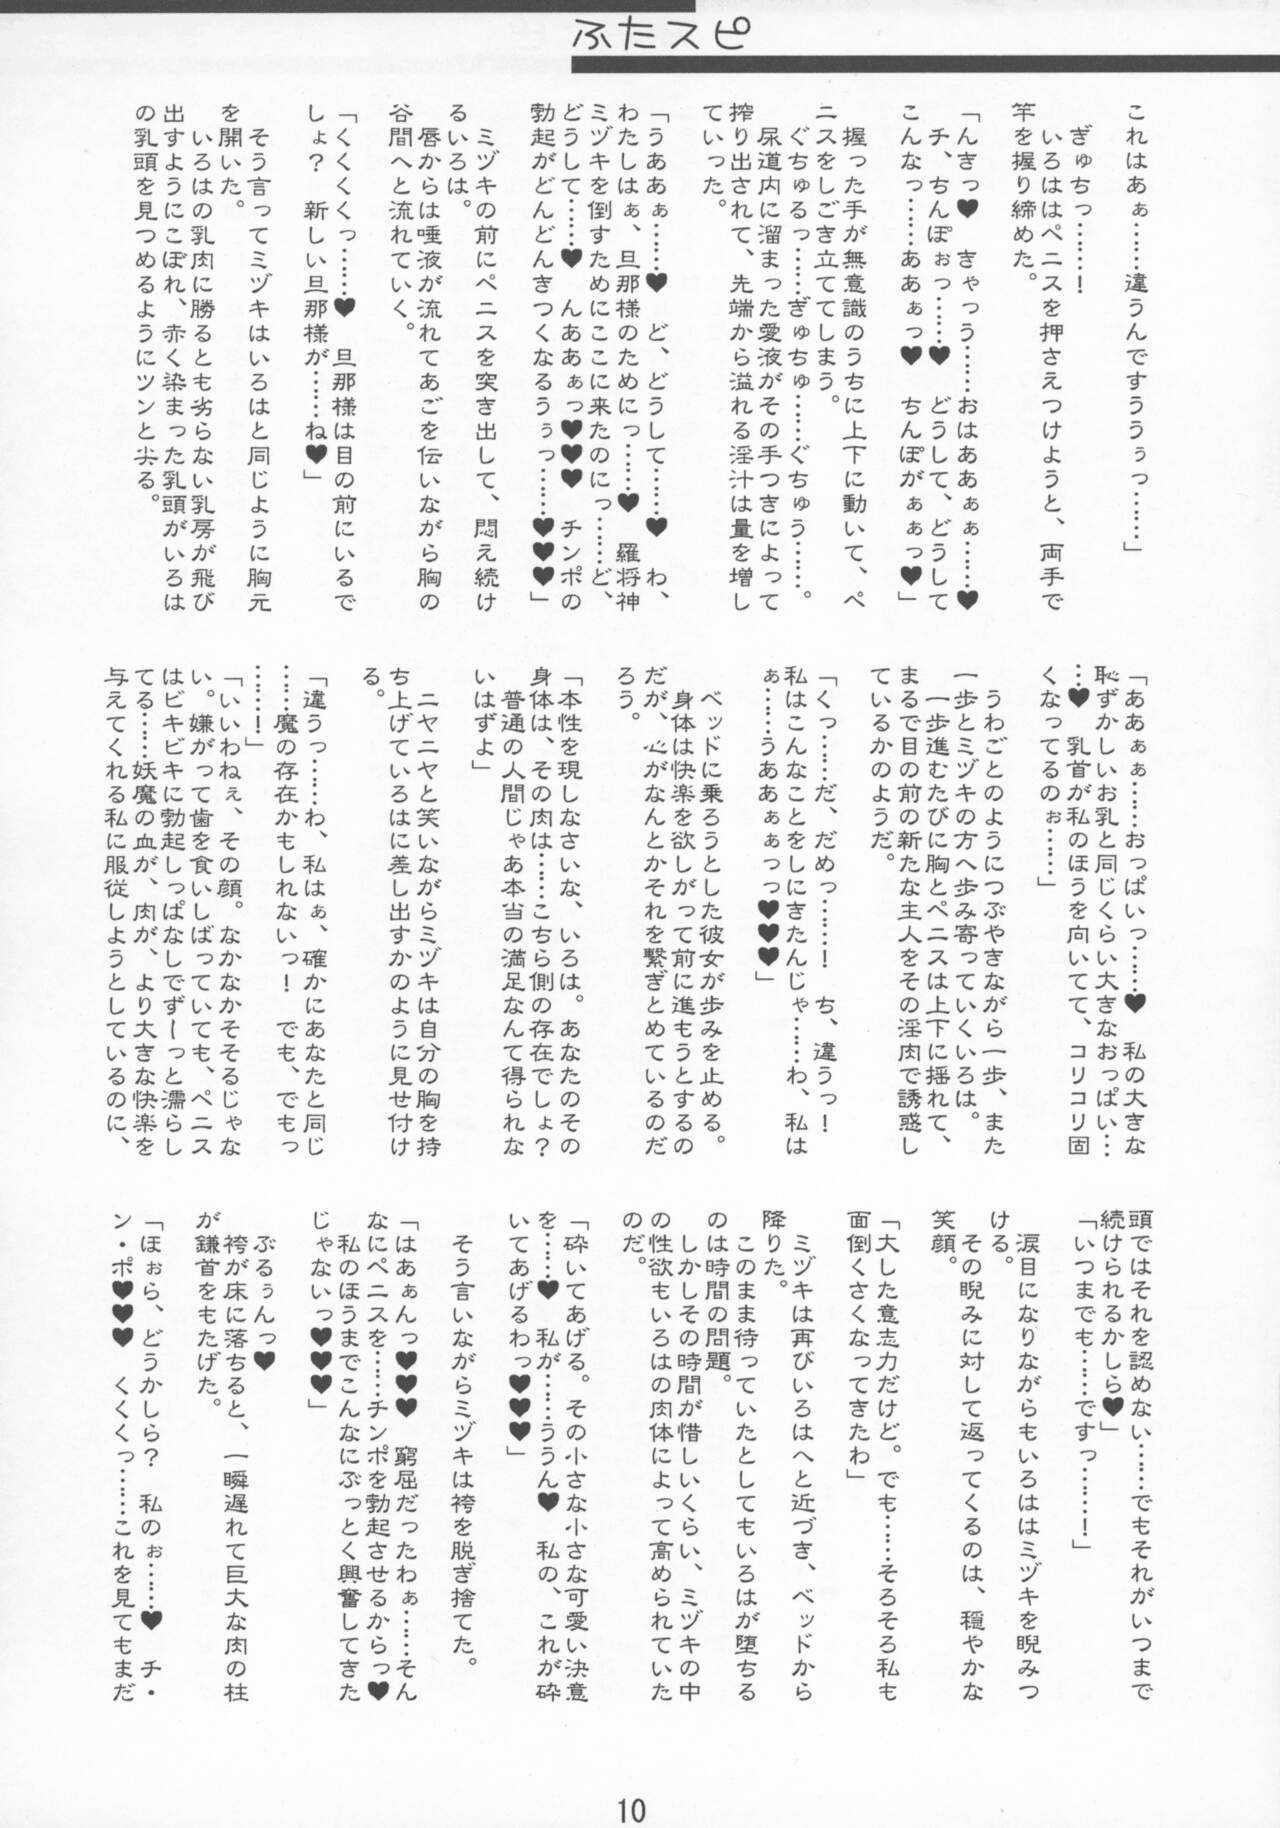 ふたスピ
これはあぁ……違うんですううぅっ……」
　ぎゅちっ……！
　いろははペニスを押さえつけようと、両手で
竿を握り締めた。
「んぎっ♥　きゃっう……おはああぁぁ……♥
　チ、ちんぽぉっ……♥　どうして、どうして
こんなっ……ああぁっ♥　ちんぽがぁぁっ♥」
　握った手が無意識のうちに上下に動いて、ペ
ニスをしごき立ててしまう。
　ぐちゅるっ……ぎゅちゅ……ぐちゅう……。
　尿道内に溜まった愛液がその手つきによって
搾り出されて、先端から溢れる淫汁は量を増し
ていった。
「うああぁ……♥　ど、どうして……♥　わ、
わたしはぁ、旦那様のためにっ……♥　羅将神
ミヅキを倒すためにここに来たのにっ……ど、
どうして……♥　んああぁっ♥♥♥　チンポの
勃起がどんどんきつくなるうぅっ……♥♥♥」
　ミヅキの前にペニスを突き出して、悶え続け
るいろは。
　唇からは唾液が流れてあごを伝いながら胸の
谷間へと流れていく。
「くくくくっ……♥　旦那様は目の前にいるで
しょ？　新しい旦那様が……ね♥」
　そう言ってミヅキはいろはと同じように胸元
を開いた。
　いろはの乳肉に勝るとも劣らない乳房が飛び
出すようにこぼれ、赤く染まった乳頭がいろは
の乳頭を見つめるようにツンと尖る。
「ああぁぁ……おっぱいっ……♥　私の大きな
恥ずかしいお乳と同じくらい大きなおっぱい…
…♥　乳首が私のほうを向いてて、コリコリ固
くなってるのぉ……」
　うわごとのようにつぶやきながら一歩、また
一歩とミヅキの方へ歩み寄っていくいろは。
　一歩進むたびに胸とペニスは上下に揺れて、
まるで目の前の新たな主人をその淫肉で誘惑し
ているかのようだ。
「くっ……だ、だめっ……！　ち、違うっ！
私はこんなことをしにきたんじゃ……わ、私は
ぁ……うああぁぁっっ♥♥♥」
　ベッドに乗ろうとした彼女が歩みを止める。
　身体は快楽を欲しがって前に進もうとするの
だが、心がなんとかそれを繋ぎとめているのだ
ろう。
「本性を現しなさいな、いろは。あなたのその
身体は、その肉は……こちら側の存在でしょ？
　普通の人間じゃあ本当の満足なんて得られな
いはずよ」
　ニヤニヤと笑いながらミヅキは自分の胸を持
ち上げていろはに差し出すかのように見せ付け
る。
「違うっ……わ、私はぁ、確かにあなたと同じ
……魔の存在かもしれないっ！　でも、でもっ
……！」
「いいわねぇ、その顔。なかなかそそるじゃな
い。嫌がって歯を食いしばっていても、ペニス
はビキビキに勃起しっぱなしでず〜っと濡らし
てる……妖魔の血が、肉が、より大きな快楽を
与えてくれる私に服従しようとしているのに、
頭ではそれを認めない……でもそれがいつまで
続けられるかしら♥」
「いつまでも……ですっ……！」
　涙目になりながらもいろははミヅキを睨みつ
ける。
　その睨みに対して返ってくるのは、穏やかな
笑顔。
「大した意志力だけど。でも……そろそろ私も
面倒くさくなってきたわ」
　ミヅキは再びいろはへと近づき、ベッドから
降りた。
　このまま待っていたとしてもいろはが堕ちる
のは時間の問題。
　しかしその時間が惜しいくらい、ミヅキの中
の性欲もいろはの肉体によって高められていた
のだ。
「砕いてあげる。その小さな小さな可愛い決意
を……♥　私が……ううん♥　私の、これが砕
いてあげるわっ♥♥♥」
　そう言いながらミヅキは袴を脱ぎ捨てた。
「はあぁんっ♥♥♥　窮屈だったわぁ……そん
なにペニスを……チンポを勃起させるからっ♥
　私のほうまでこんなにぶっとく興奮してきた
じゃないっ♥♥♥」
　ぶるぅんっ♥
　袴が床に落ちると、一瞬遅れて巨大な肉の柱
が鎌首をもたげた。
「ほぉら、どうかしら？　私のぉ……♥　チ・
ン・ポ♥♥♥　くくくっ……これを見てもまだ
10